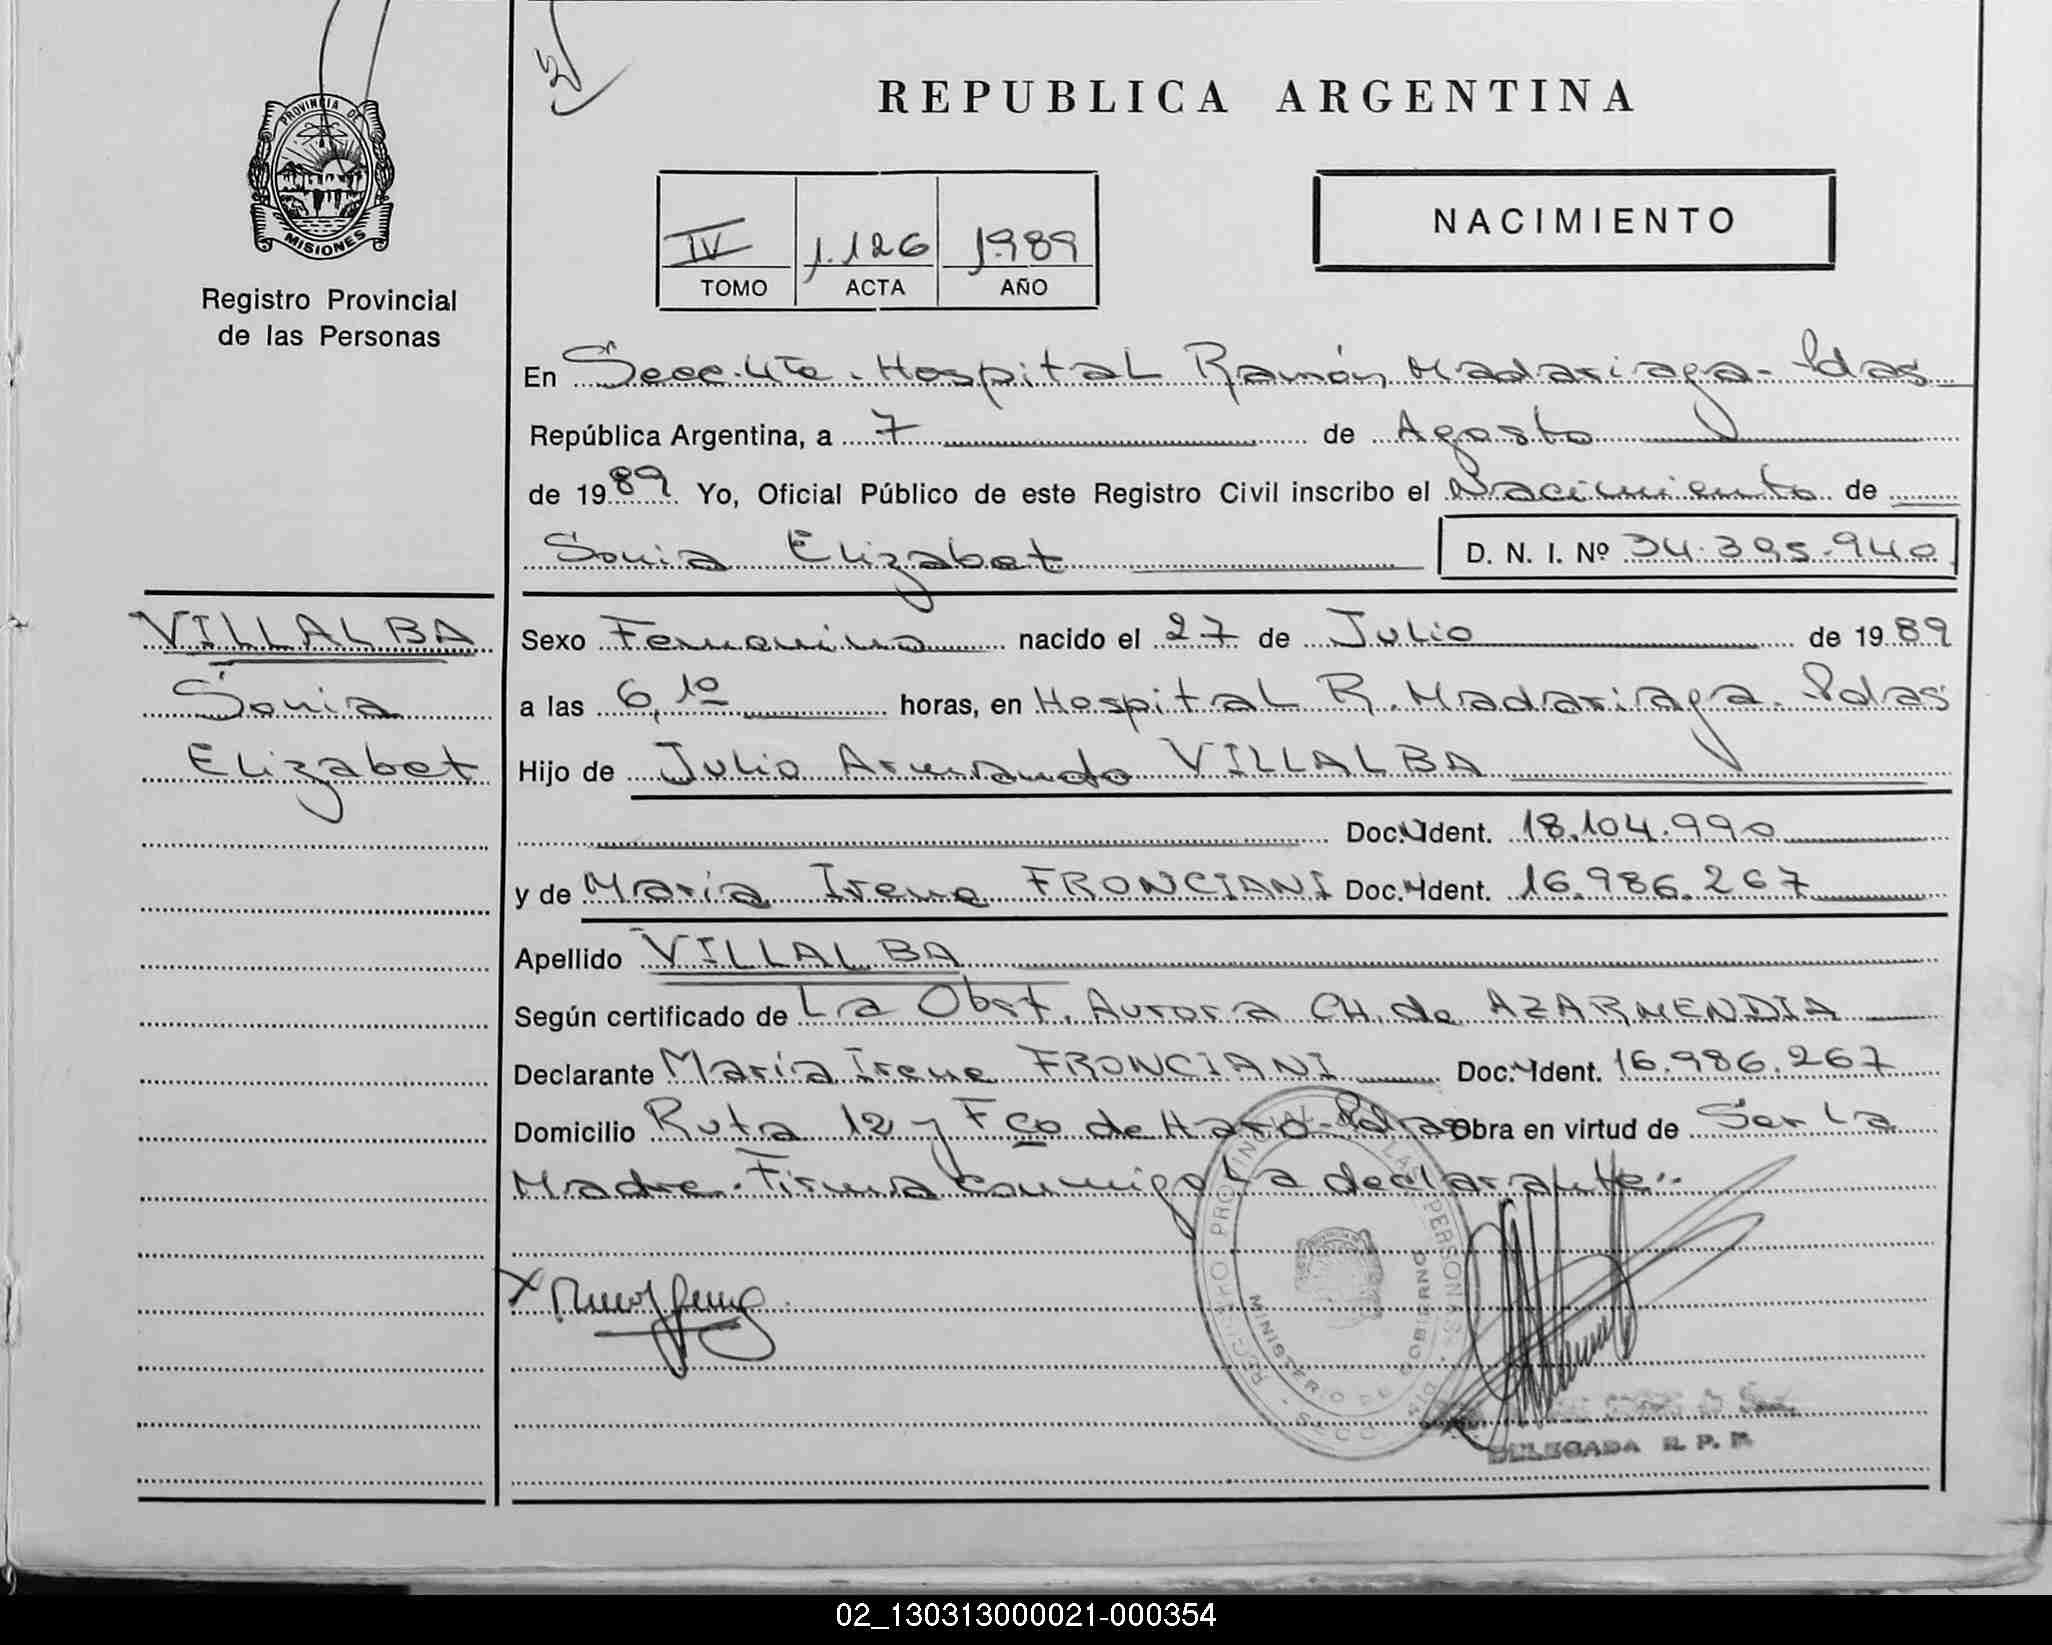 REPUBLICA ARGENTINA
PROVINCIA DE
MISIONES
Registro Provincial
de las Personas
IV 1.126 1989
TOMO ACTA AÑO
NACIMIENTO
En Secc. 4ta. Hospital Ramón Madariaga - Pdas
República Argentina, a 7 de Agosto
de 1989 Yo, Oficial Público de este Registro Civil inscribo el Nacimiento de
Sonia Elizabet D. N. I. Nº 34.395.940
VILLALBA
Sonia
Elizabet
Sexo Femenino nacido el 27 de Julio de 1989
a las 6,10 horas, en Hospital R. Madariaga. Pdas
Hijo de Julio Armando VILLALBA
Doc. Ident. 18.104.990
y de María Irene FRONCIANI Doc. Ident. 16.986.267
Apellido VILLALBA
Según certificado de La Obst. Aurora CH. de AZARMENDIA
Declarante María Irene FRONCIANI Doc. Ident. 16.986.267
Domicilio Ruta 12 y Fco de Haro - Pdas Obra en virtud de Ser la
Madre. Firma conmigo la declarante.
REGISTRO PROVINCIAL DE LAS PERSONAS
MINISTERIO DE GOBIERNO
DELEGADA R. P. P.
02_130313000021-000354